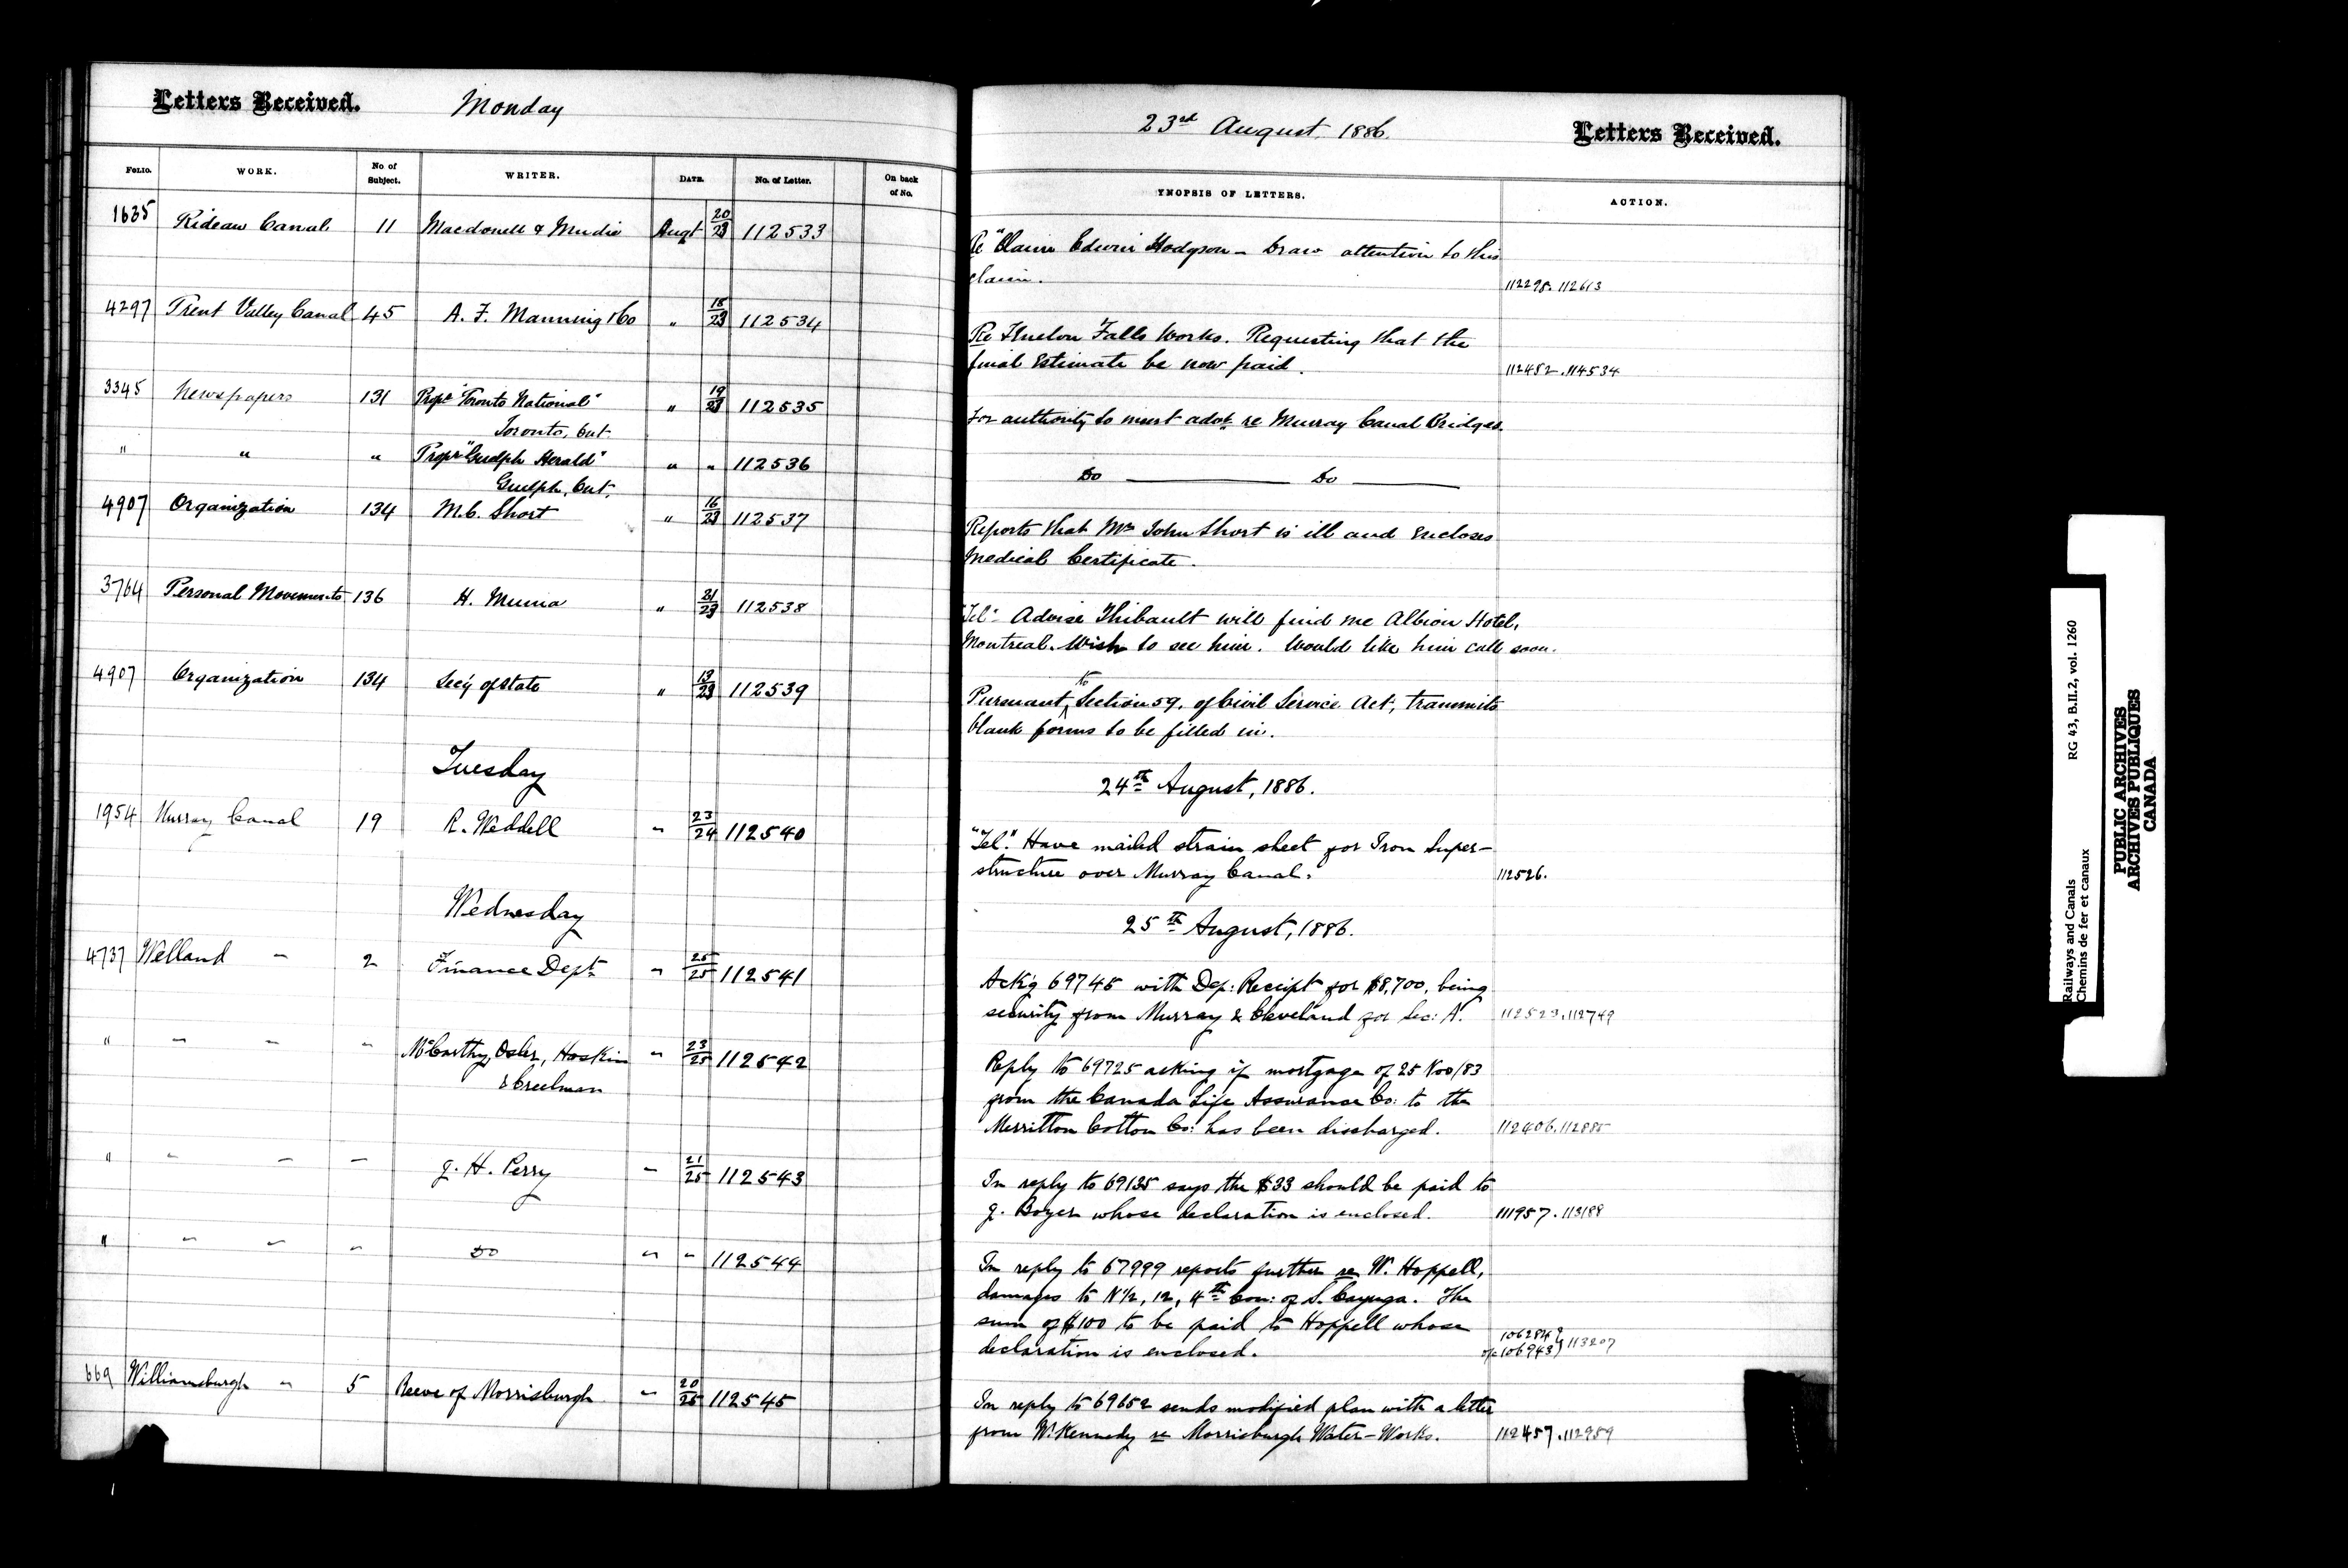 Letters Received. Monday
FOLIO. WORK. No of Subject. WRITER. DATE. No. of Letter. On back of No.
1635 Rideau Canal 11 Macdonell & Mudie Augt 20/23 112533
4297 Trent Valley Canal 45 A. F. Manning & Co " 18/23 112534
3345 Newspapers 131 Propr "Toronto National" " 19/23 112535
Toronto, Ont.
" " " Propr "Guelph Herald" " " 112536
Guelph, Ont.
4907 Organization 134 M.C. Short " 16/23 112537
3764 Personal Movements 136 H. Muma " 21/23 112538
4907 Organization 134 Secy of State " 13/23 112539
Tuesday
1954 Murray Canal 19 R. Weddell " 23/24 112540
Wednesday
4737 Welland " 2 Finance Dept " 25/25 112541
" " " " McCarthy, Osler, Hoskin " 23/25 112542
& Creelman
" " " " G. H. Perry " 21/25 112543
" " " " Do " " 112544
669 Williamsburgh " 5 Reeve of Morrisburgh " 20/25 112545
23rd August 1886. Letters Received.
YNOPSIS OF LETTERS. ACTION.
Re "Claim Edwin Hodgson - Draw attention to this
claim. 112298. 112613
Re Fenelon Falls Works. Requesting that the
final Estimate be now paid. 112452. 114534
For authority to insert advt re Murray Canal Bridges.
Do Do
Reports that Mr John Short is ill and encloses
Medical Certificate.
"Tel" Advise Thibault will find me Albion Hotel,
Montreal. Wish to see him. Would like him call soon.
Pursuant to Section 59. of Civil Service Act, transmits
blank forms to be filled in.
24th August, 1886.
"Tel." Have mailed strain sheet for Iron Super-
structure over Murray Canal. 112526.
25th August, 1886.
Ack'g 69745 with Dep: Receipt for $8,700, being
security from Murray & Cleveland for Sec: A. 112523. 112749
Reply to 69725 asking if mortgage of 25 Nov/83
from the Canada Life Assurance Co: to the
Merritton Cotton Co: has been discharged. 112406. 112885
In reply to 69135 says the $33 should be paid to
G. Boyer whose declaration is enclosed. 111957. 113188
In reply to 67999 reports further re W. Hoppell,
damages to N½, 12, 4th Con: of S. Cayuga. The
sum of $100 to be paid to Hoppell whose
declaration is enclosed. 106284 106943 } 113207
In reply to 69652 sends modified plan with a letter
from W. Kennedy re Morrisburgh Water-Works. 112457. 112959
Railways and Canals RG 43, B.III.2, vol. 1260
Chemins de fer et canaux
PUBLIC ARCHIVES
ARCHIVES PUBLIQUES
CANADA